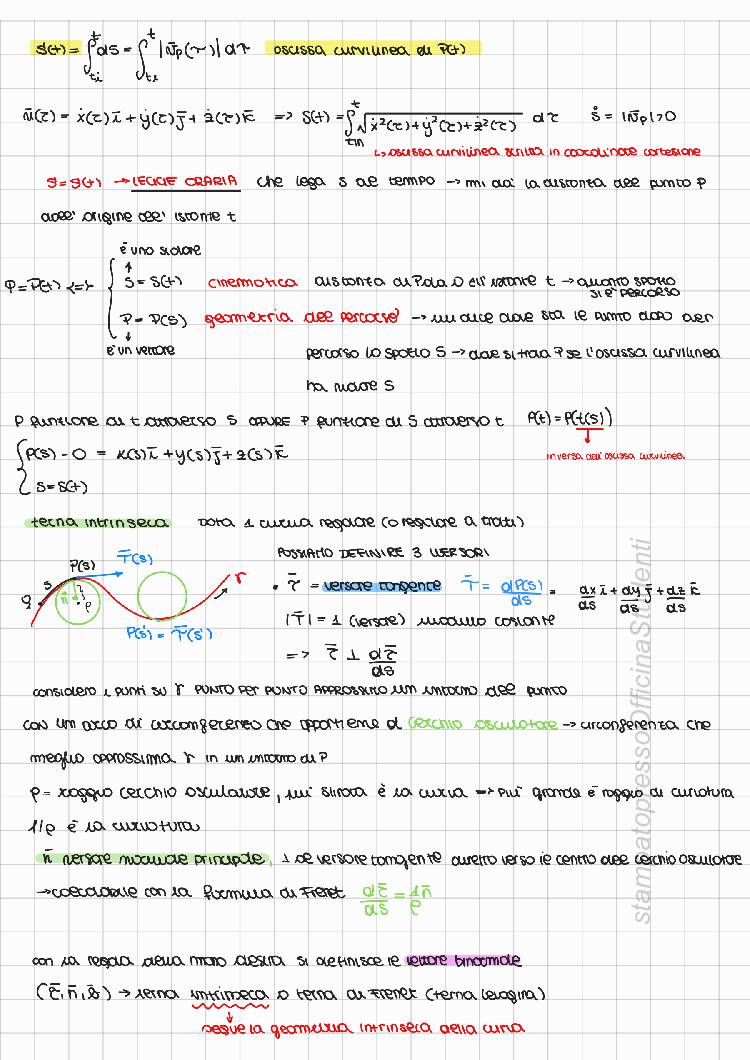 S(t) = ∫_{ti}^{t} ds = ∫_{ti}^{t} |v̄p(τ)| dτ ascissa curvilinea di P(t)
v̄(τ) = ẋ(τ)ī + ẏ(τ)j̄ + ż(τ)k̄ => S(t) = ∫_{tin}^{t} √(ẋ²(τ)+ẏ²(τ)+ż²(τ)) dτ ṡ = |v̄p| > 0
↳ ascissa curvilinea scritta in coordinate cartesiane
s = s(t) → LEGGE ORARIA che lega s al tempo → mi dà la distanza del punto P
dall'origine all'istante t
è uno scalare
↑
P = P(t) <=> { S = S(t) cinematica distanza di P da O all'istante t → quanto spazio
si è PERCORSO
P = P(S) geometria del percorso → mi dice dove sta il punto dopo aver
↓
è un vettore percorso lo spazio S → dove si trova P se l'ascissa curvilinea
ha valore S
P funzione di t attraverso S oppure P funzione di S attraverso t P(t) = P(t(s))
inversa dell'ascissa curvilinea.
{ P(s) - O = x(s)ī + y(s)j̄ + z(s)k̄
s = s(t)
terna intrinseca Data 1 curva regolare (o regolare a tratti)
POSSIAMO DEFINIRE 3 VERSORI
P(s) τ̄(s)
s n̄ ρ γ
P(s') = τ̄(s')
• τ̄ = versore tangente τ̄ = dP(s)/ds = dx/ds ī + dy/ds j̄ + dz/ds k̄
|τ̄| = 1 (versore) modulo costante
=> τ̄ ⊥ dτ̄/ds
considero i punti su γ PUNTO PER PUNTO APPROSSIMO un intorno del punto
con un arco di circonferenza che appartiene al cerchio osculatore → circonferenza che
meglio approssima γ in un intorno di P
ρ = raggio cerchio osculatore, è la curva → più grande è raggio di curvatura
1/ρ è la curvatura
n̄ versore normale principale, ⊥ al versore tangente diretto verso il centro del cerchio osculatore
→ calcolabile con la formula di Frenet dτ̄/ds = 1/ρ n̄
con la regola della mano destra si definisce il vettore binormale
(τ̄, n̄, b̄) → terna intrinseca o terna di Frenet (terna levogira)
↓
segue la geometria intrinseca della curva
stampatopressoOfficinaStudenti